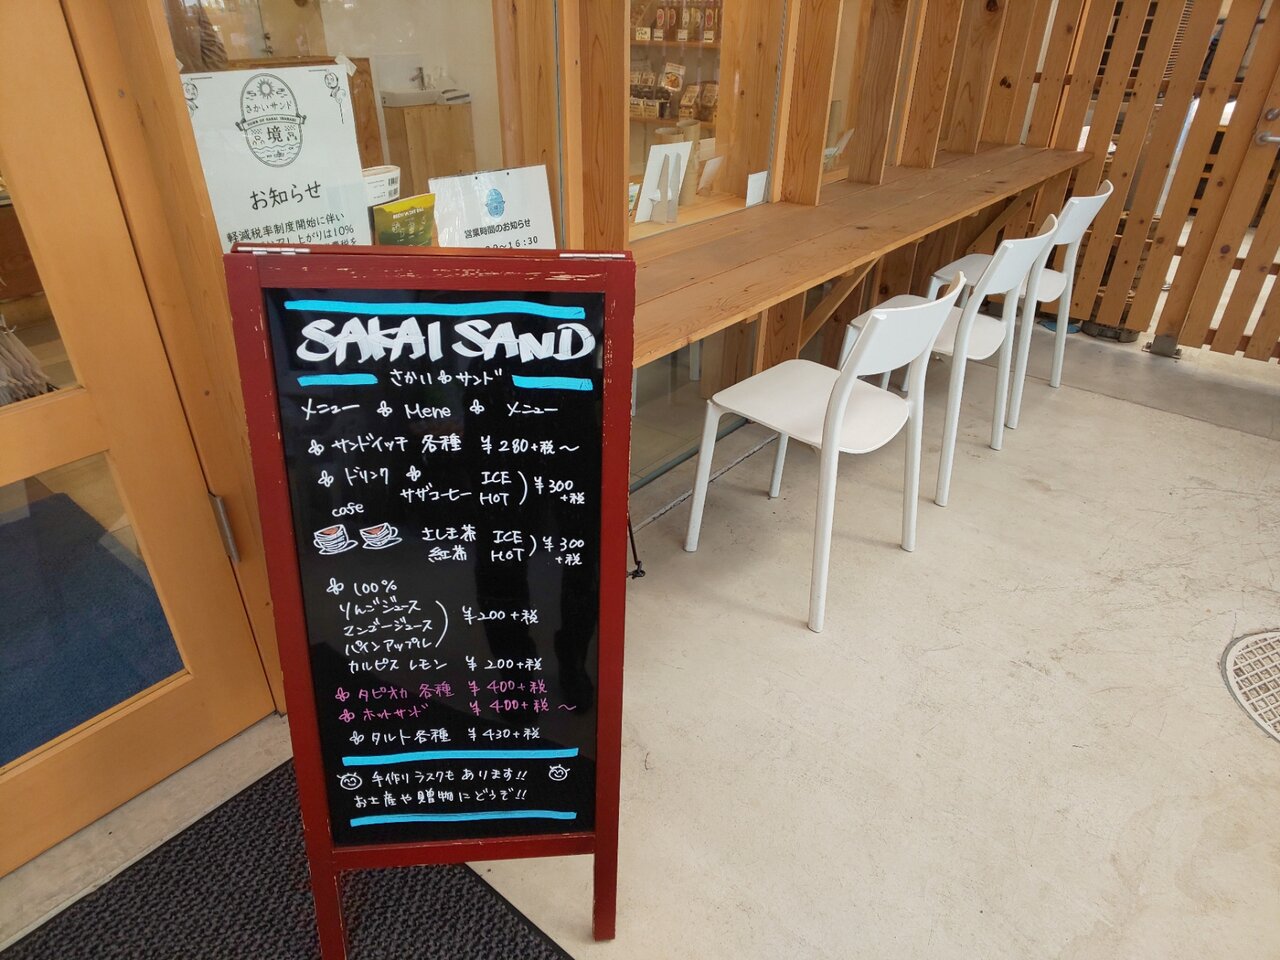 さかいサンド
TOWN OF SAKAI IBARAKI
境
お知らせ
軽減税率制度開始に伴い
し上がりは10%
営業時間のお知らせ
～16:30
SAKAI SAND
さかい サンド
メニュー Mene メニュー
サンドイッチ 各種 ¥280+税～
ドリンク
サザコーヒー ICE HOT ¥300+税
cafe
さしま茶 ICE
紅茶 HOT ¥300+税
100%
りんごジュース
マンゴージュース ¥200+税
パインアップル
カルピス レモン ¥200+税
タピオカ 各種 ¥400+税
ホットサンド ¥400+税～
タルト各種 ¥430+税
手作りラスクも あります!!
お土産や贈物にどうぞ!!